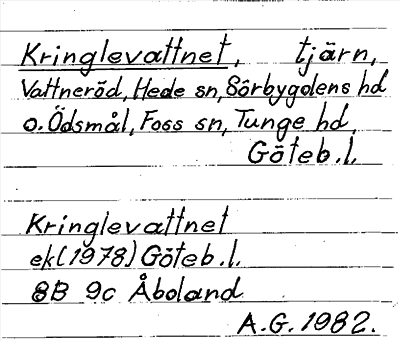 Kringlevattnet, tjärn,
Vattneröd, Hede sn, Sörbygdens hd
o. Ödsmål, Foss sn, Tunge hd,
Göteb.l.
Kringlevattnet
ek (1978) Göteb.l.
8B 9c Åboland
A.G. 1982.